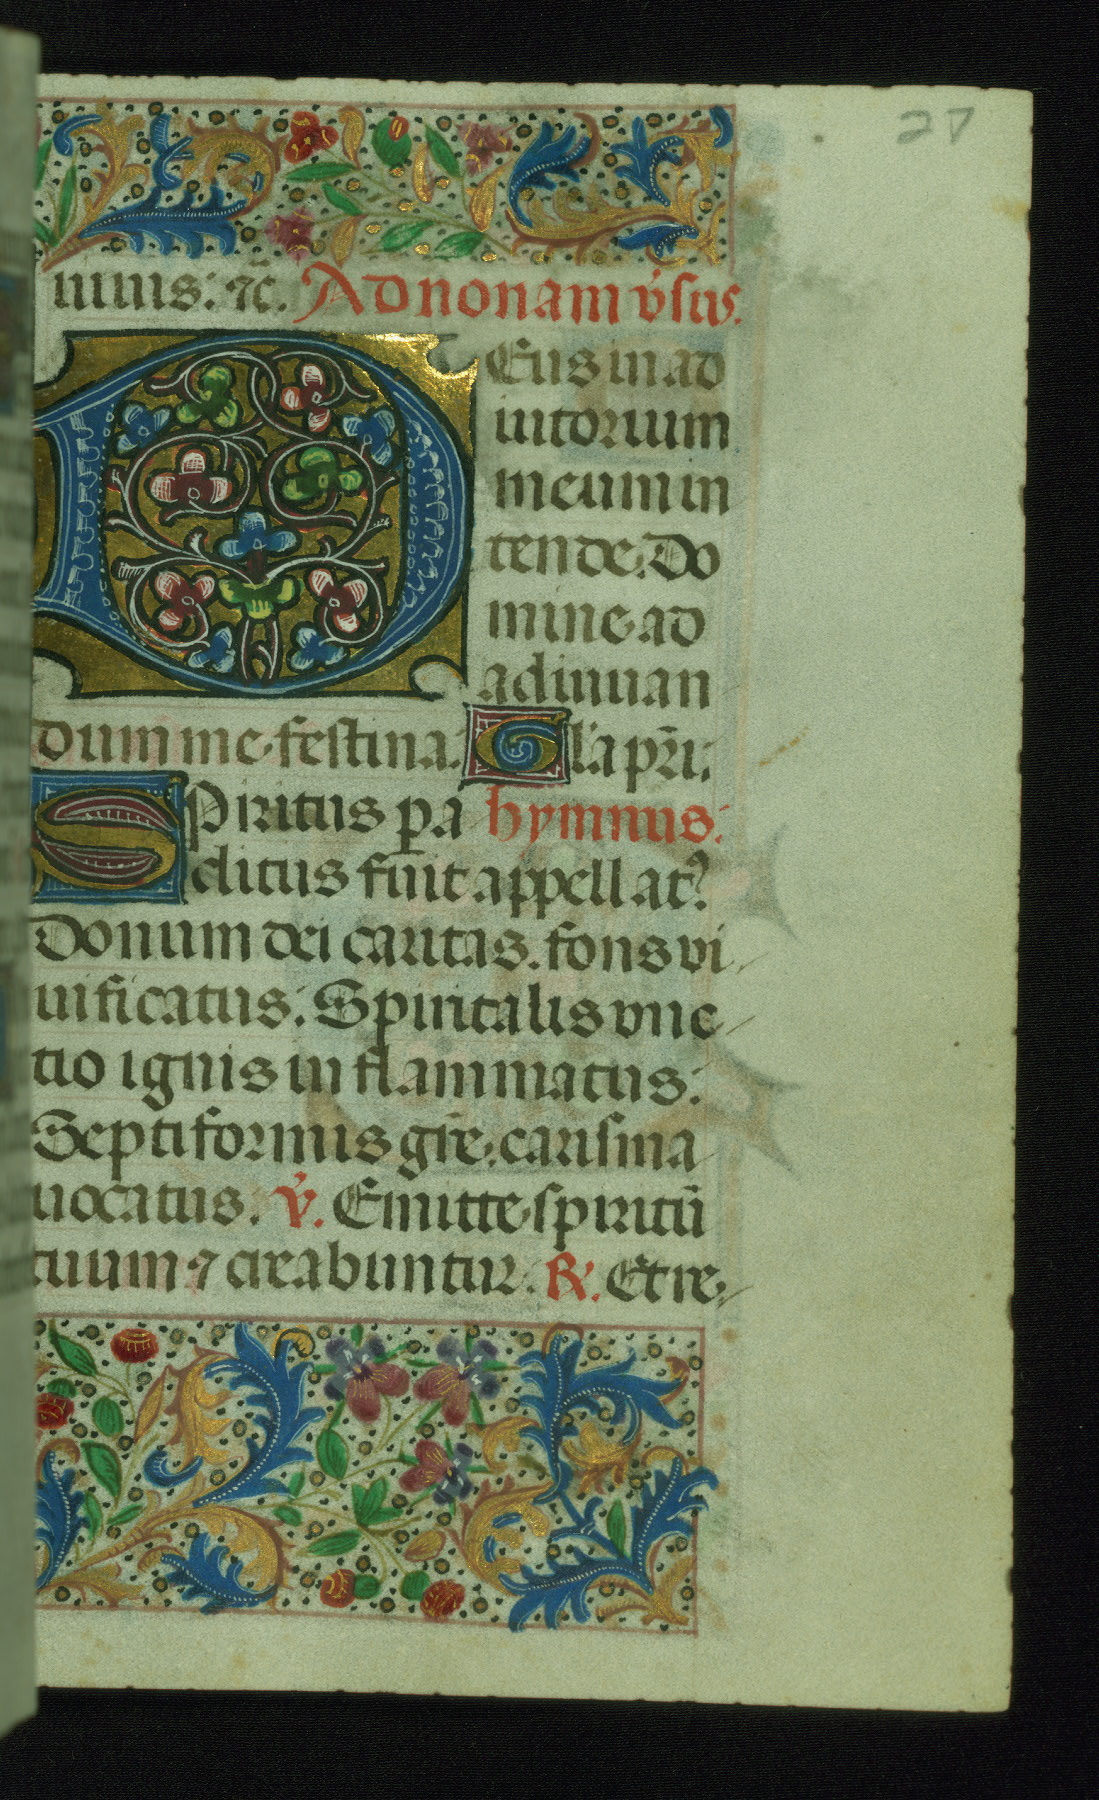 27
minis: ⁊c̄. Ad nonam v̓sus.
DEus in ad
iutorium
meum in
tende. Do
mine ad
adiuuan
dum me festina. Gl̓a pr̄i:
Spiritus pa hymnus:
clitus fuit appellatꝰ
Donum dei caritas. fons vi
uificatus. Spiritalis vnc
tio ignis inflammatus:
Septiformis gr̄e. carisma
uocatus. v̓. Emitte spiritū
tuum ⁊ creabuntur. ℟. Et re